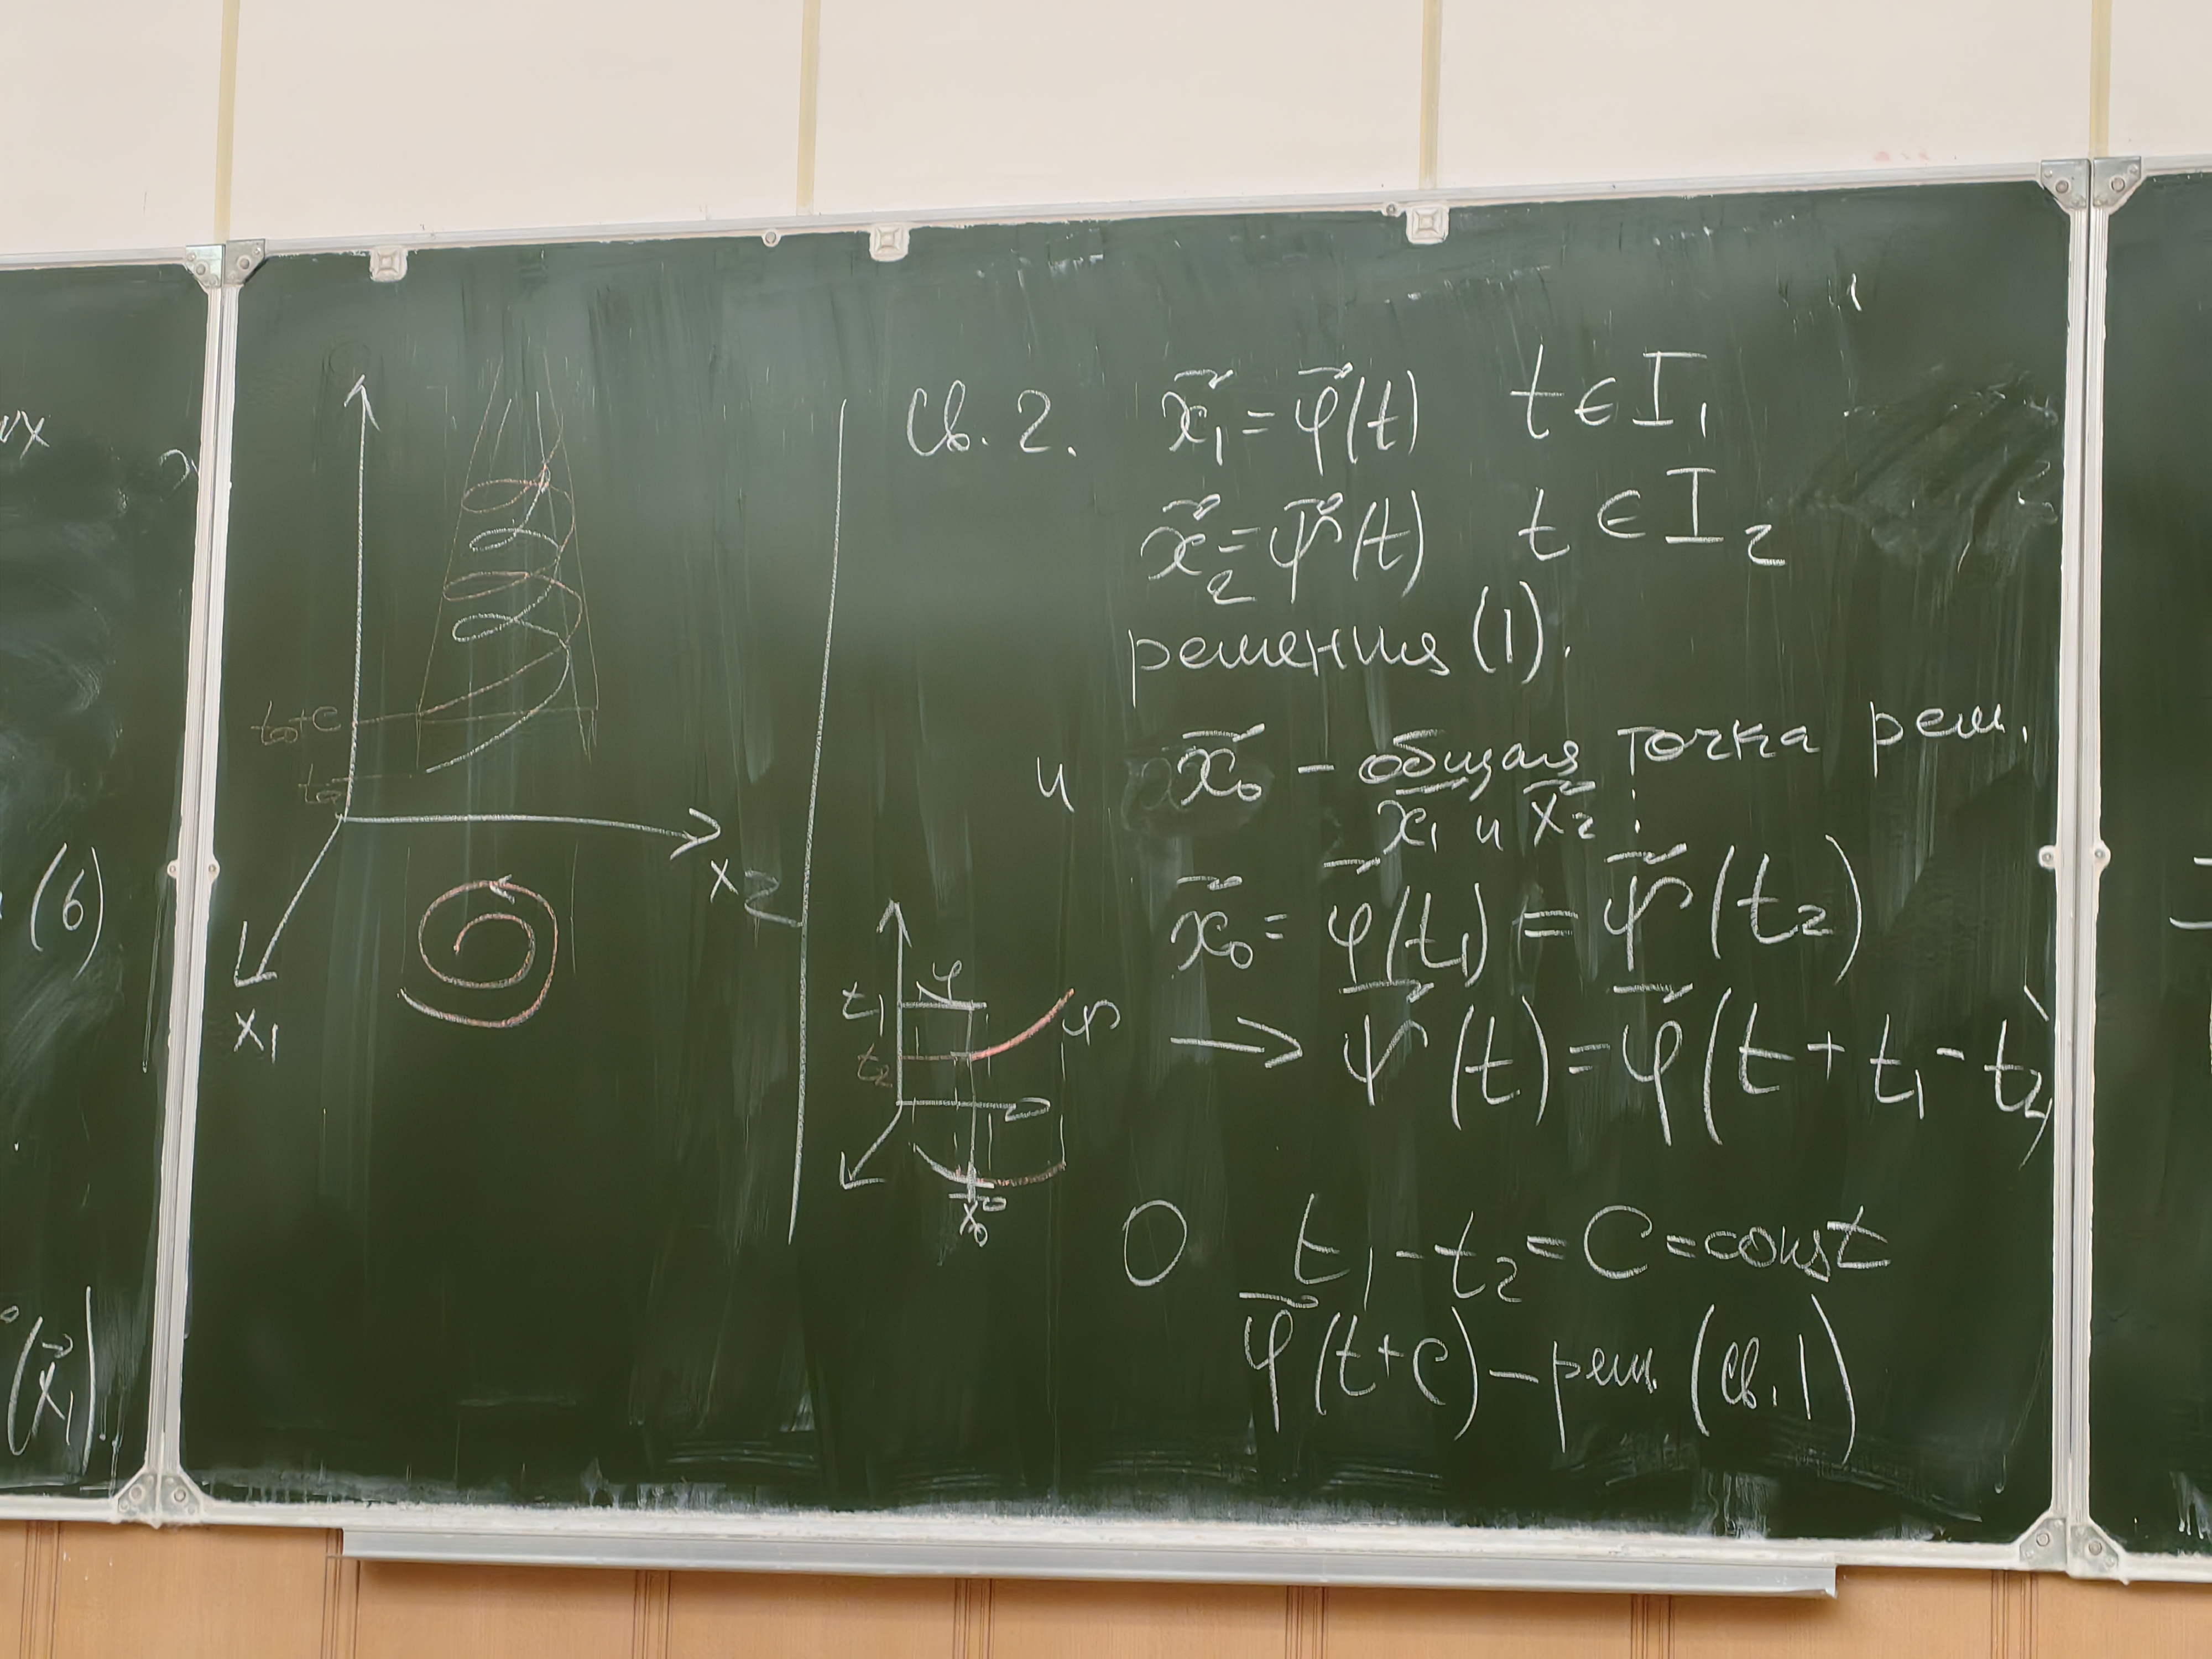 их
(6)
(x⃗₁)
t₀+c
t₀
x₂
x₁
Св. 2. x⃗₁ = φ⃗(t) t ∈ I₁
x⃗₂ = ψ⃗(t) t ∈ I₂
решения (1).
и x⃗₀ – общая точка реш.
x⃗₁ и x⃗₂:
x⃗₀ = φ⃗(t₁) = ψ⃗(t₂)
→ ψ⃗(t) = φ⃗(t + t₁ - t₂)
φ
t₁
ψ
t₂
x⃗₀
O t₁ - t₂ = C = const
φ⃗(t+C) – реш. (св. 1)